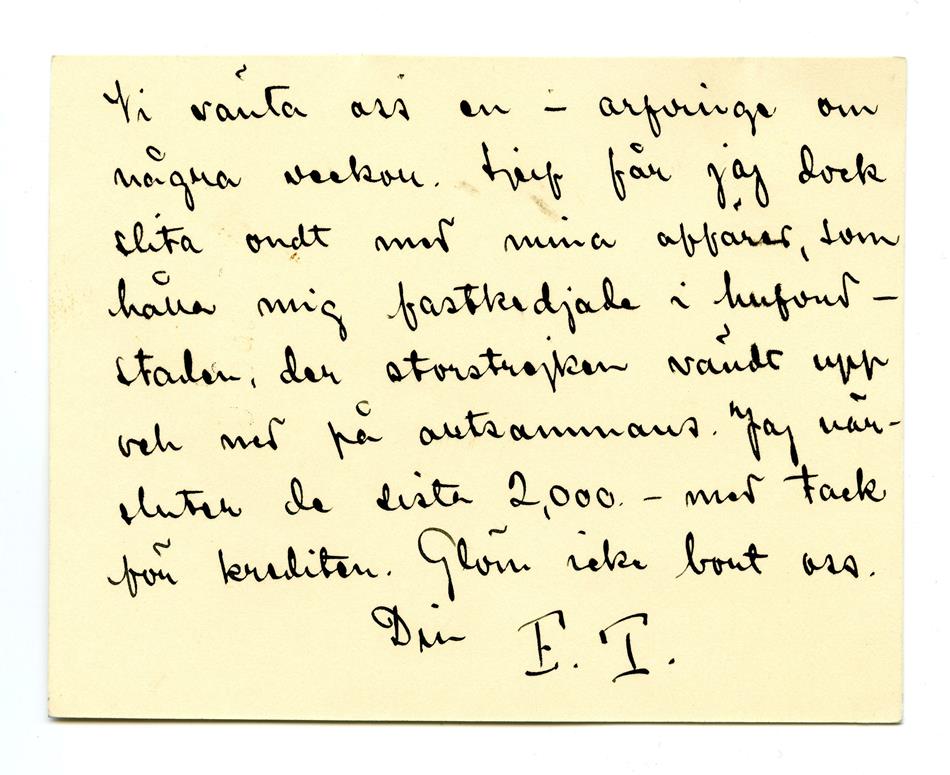 Vi vänta oss en – arfvinge om
några veckor. Sjelf får jag dock
slita ondt med mina affärer, som
hålla mig fastkedjade i hufvud-
staden, der storstrejken vändt upp
och ned på alltsammans. Jag när-
sluter de sista 2,000.– med tack
för krediten. Glöm icke bort oss.
Din E. T.